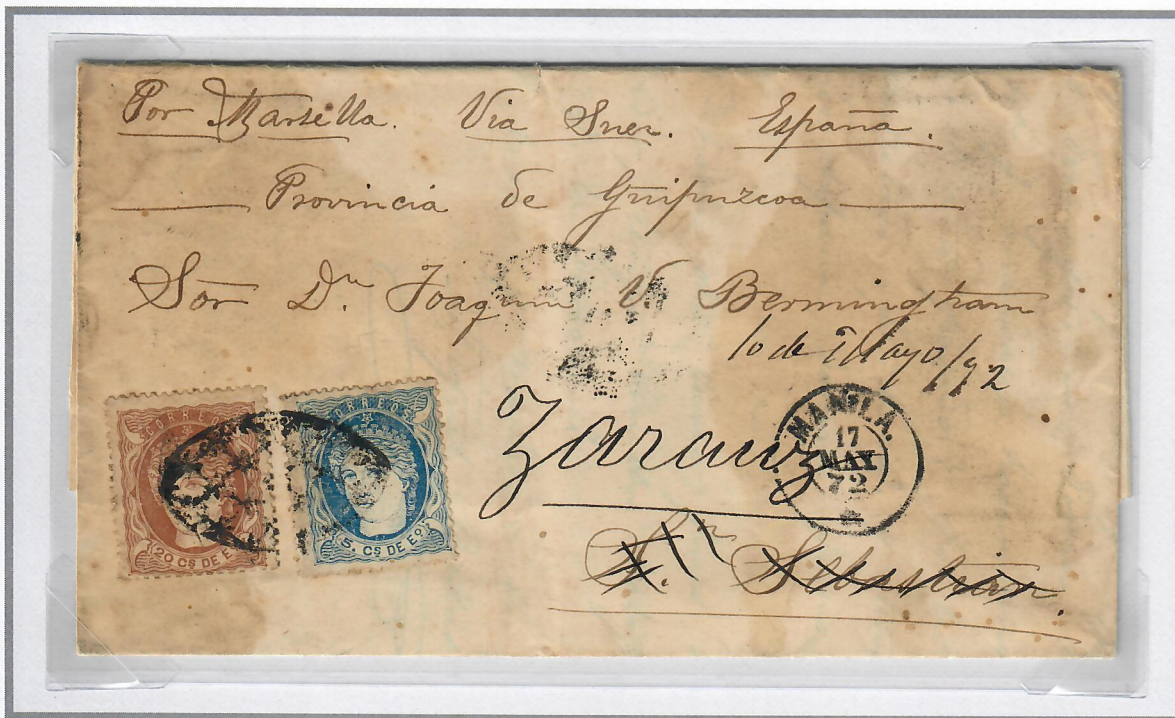 Por Marsella. Via Suez. España.
Provincia de Guipuzcoa
Sor Dn Joaquin V. Bermingham
10 de Mayo/72
Zarauz
Sn Sebastián.
MANILA.
17
MAY
72
CORREOS
20 CS DE E
CORREOS
5. CS DE Eº